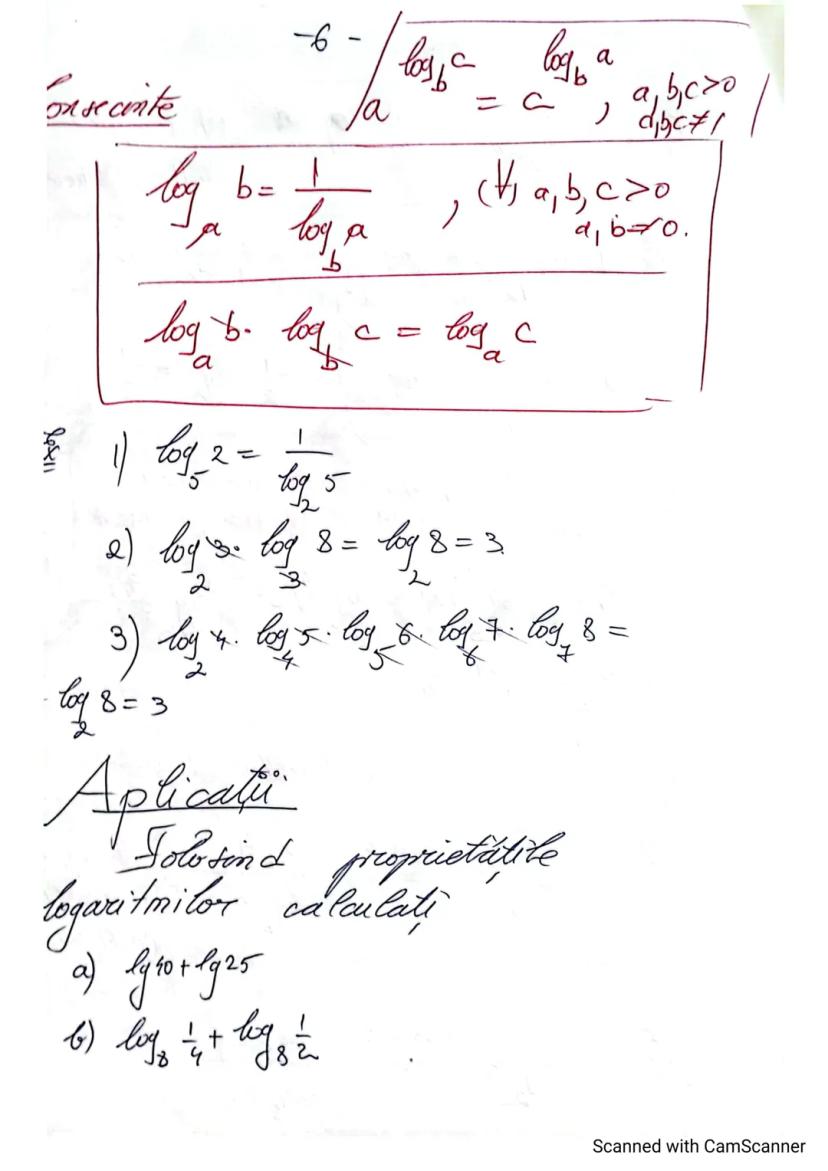 -6-
Consecințe
a^{log_b c} = c^{log_b a}, a,b,c>0
a,b,c≠1
log_a b = 1/log_b a, (∀) a,b,c>0
a,b≠0.
log_a b · log_b c = log_a c
Ex 1) log_5 2 = 1/log_2 5
2) log_2 3 · log_3 8 = log_2 8 = 3
3) log_2 4 · log_4 5 · log_5 6 · log_6 7 · log_7 8 =
log_2 8 = 3
Aplicații
Folosind proprietățile
logaritmilor calculați
a) lg 40 + lg 25
b) log_8 1/4 + log_8 1/2
Scanned with CamScanner